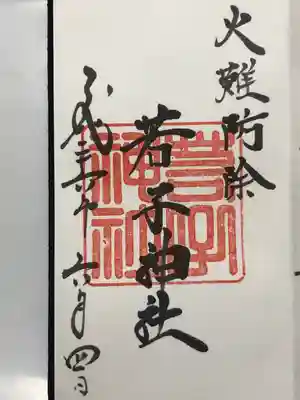 火難防除
若子神社
若子
神社
平成三十年六月四日